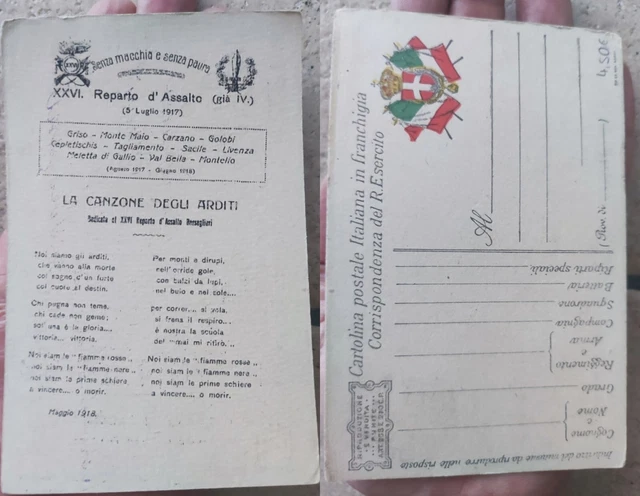 Senza macchia e senza paura
XXVI. Reparto d'Assalto (già IV.)
(5 Luglio 1917)
Griso - Monte Maio - Carzano - Golobi
Kepletischis - Tagliamento - Sacile - Livenza
Meletta di Gallio - Val Bella - Montello
(Agosto 1917 - Giugno 1918)
LA CANZONE DEGLI ARDITI
Dedicata al XXVI Reparto d'Assalto Bersaglieri
Noi siamo gli arditi,
che vanno alla morte
col sogno d'un forte
col cuore al destin.
Chi pugna non teme,
chi cade non geme;
sol'una è la gloria...
vittoria... vittoria.
Noi siam le "fiamme rosse"
noi siam le "fiamme nere"
noi siam le prime schiere
a vincere.... o morir.
Per monti e dirupi,
nell'orride gole,
con balzi da lupi,
nel buio e nel sole....
per correr.... si vola,
si frena il respiro...
è nostra la scuola
del "mai mi ritiro."
Noi siam le "fiamme rosse"
noi siam le "fiamme nere"
noi siam le prime schiere
a vincere.... o morir.
Maggio 1918.
4,50€
Cartolina postale Italiana in franchigia
Corrispondenza del R. Esercito
Al
(Prov. di
RIPRODUZIONE
E VENDITA
PUNITE
Indirizzo del mittente da riprodurre nelle risposte
Cognome
e
Nome
Grado
Reggimento
e
Arma
Compagnia
Squadrone
Batteria
Riparti speciali